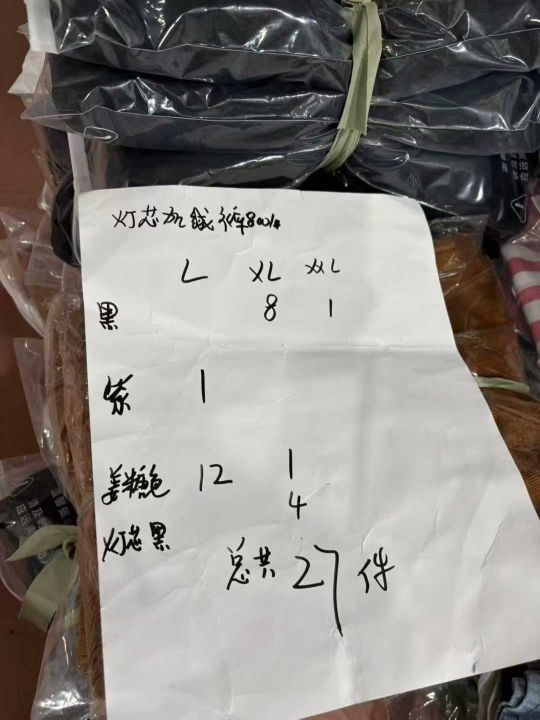 灯芯加绒裤8001#
L XL XXL
黑 8 1
灰 1
姜糖色 12 1
灯芯黑 4
总共27件